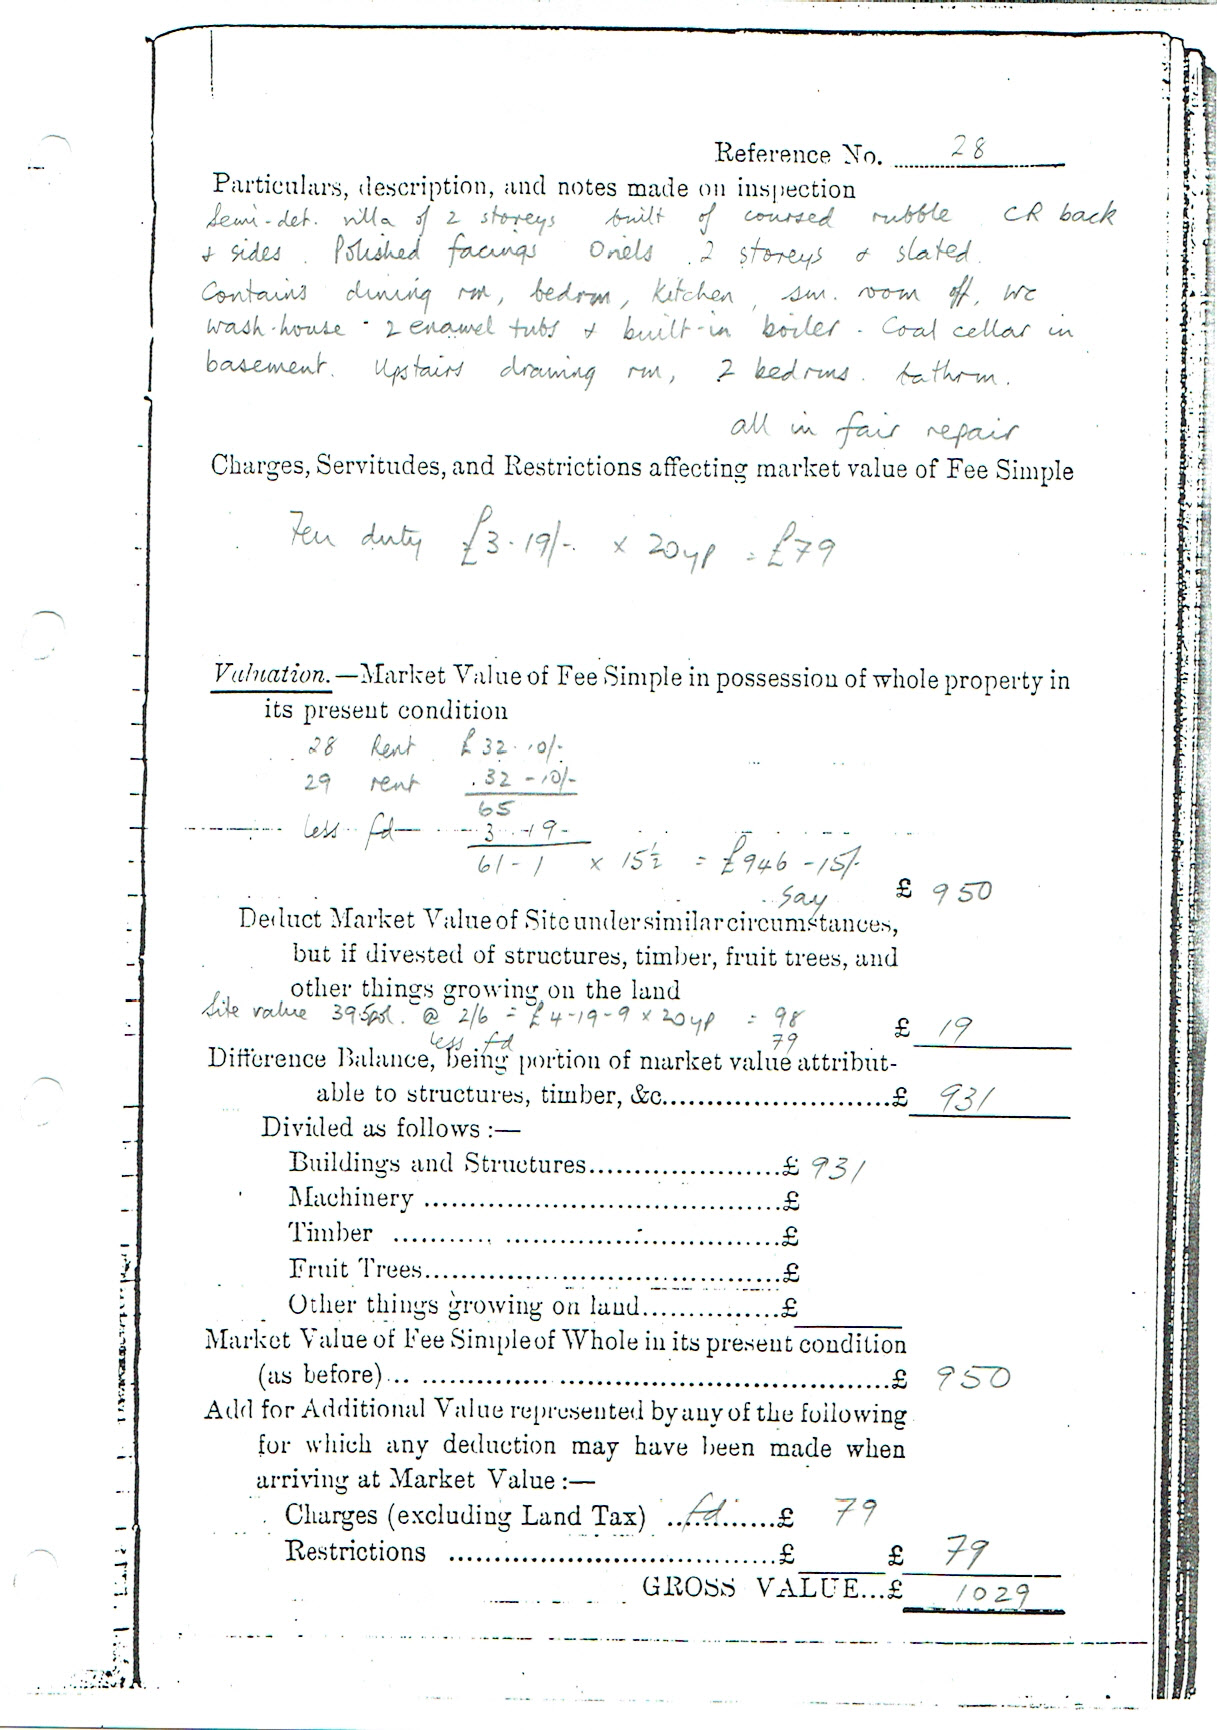 Reference No. 28
Particulars, description, and notes made on inspection
Semi-det. villa of 2 storeys built of coursed rubble CR back
& sides. Polished facings Oriels 2 storeys & slated.
Contains dining rm, bedrm, kitchen, sm. room off, wc
wash-house - 2 enamel tubs & built-in boiler. Coal cellar in
basement. Upstairs drawing rm, 2 bedrms. bathrm.
all in fair repair
Charges, Servitudes, and Restrictions affecting market value of Fee Simple
Feu duty £3.19/- x 20yp = £79
Valuation.—Market Value of Fee Simple in possession of whole property in
its present condition
28 Rent £32.10/-
29 rent 32-10/-
65
less fd 3-19-
61-1 x 15½ = £946-15/-
say £ 950
Deduct Market Value of Site under similar circumstances,
but if divested of structures, timber, fruit trees, and
other things growing on the land
Site value 39.9pol. @ 2/6 = £4-19-9 x 20yp = 98
£ 19
less fd 79
Difference Balance, being portion of market value attribut-
able to structures, timber, &c. £ 931
Divided as follows :—
Buildings and Structures £ 931
Machinery £
Timber £
Fruit Trees £
Other things growing on land £
Market Value of Fee Simple of Whole in its present condition
(as before) £ 950
Add for Additional Value represented by any of the following
for which any deduction may have been made when
arriving at Market Value :—
Charges (excluding Land Tax) fd. £ 79
Restrictions £ £ 79
GROSS VALUE...£ 1029